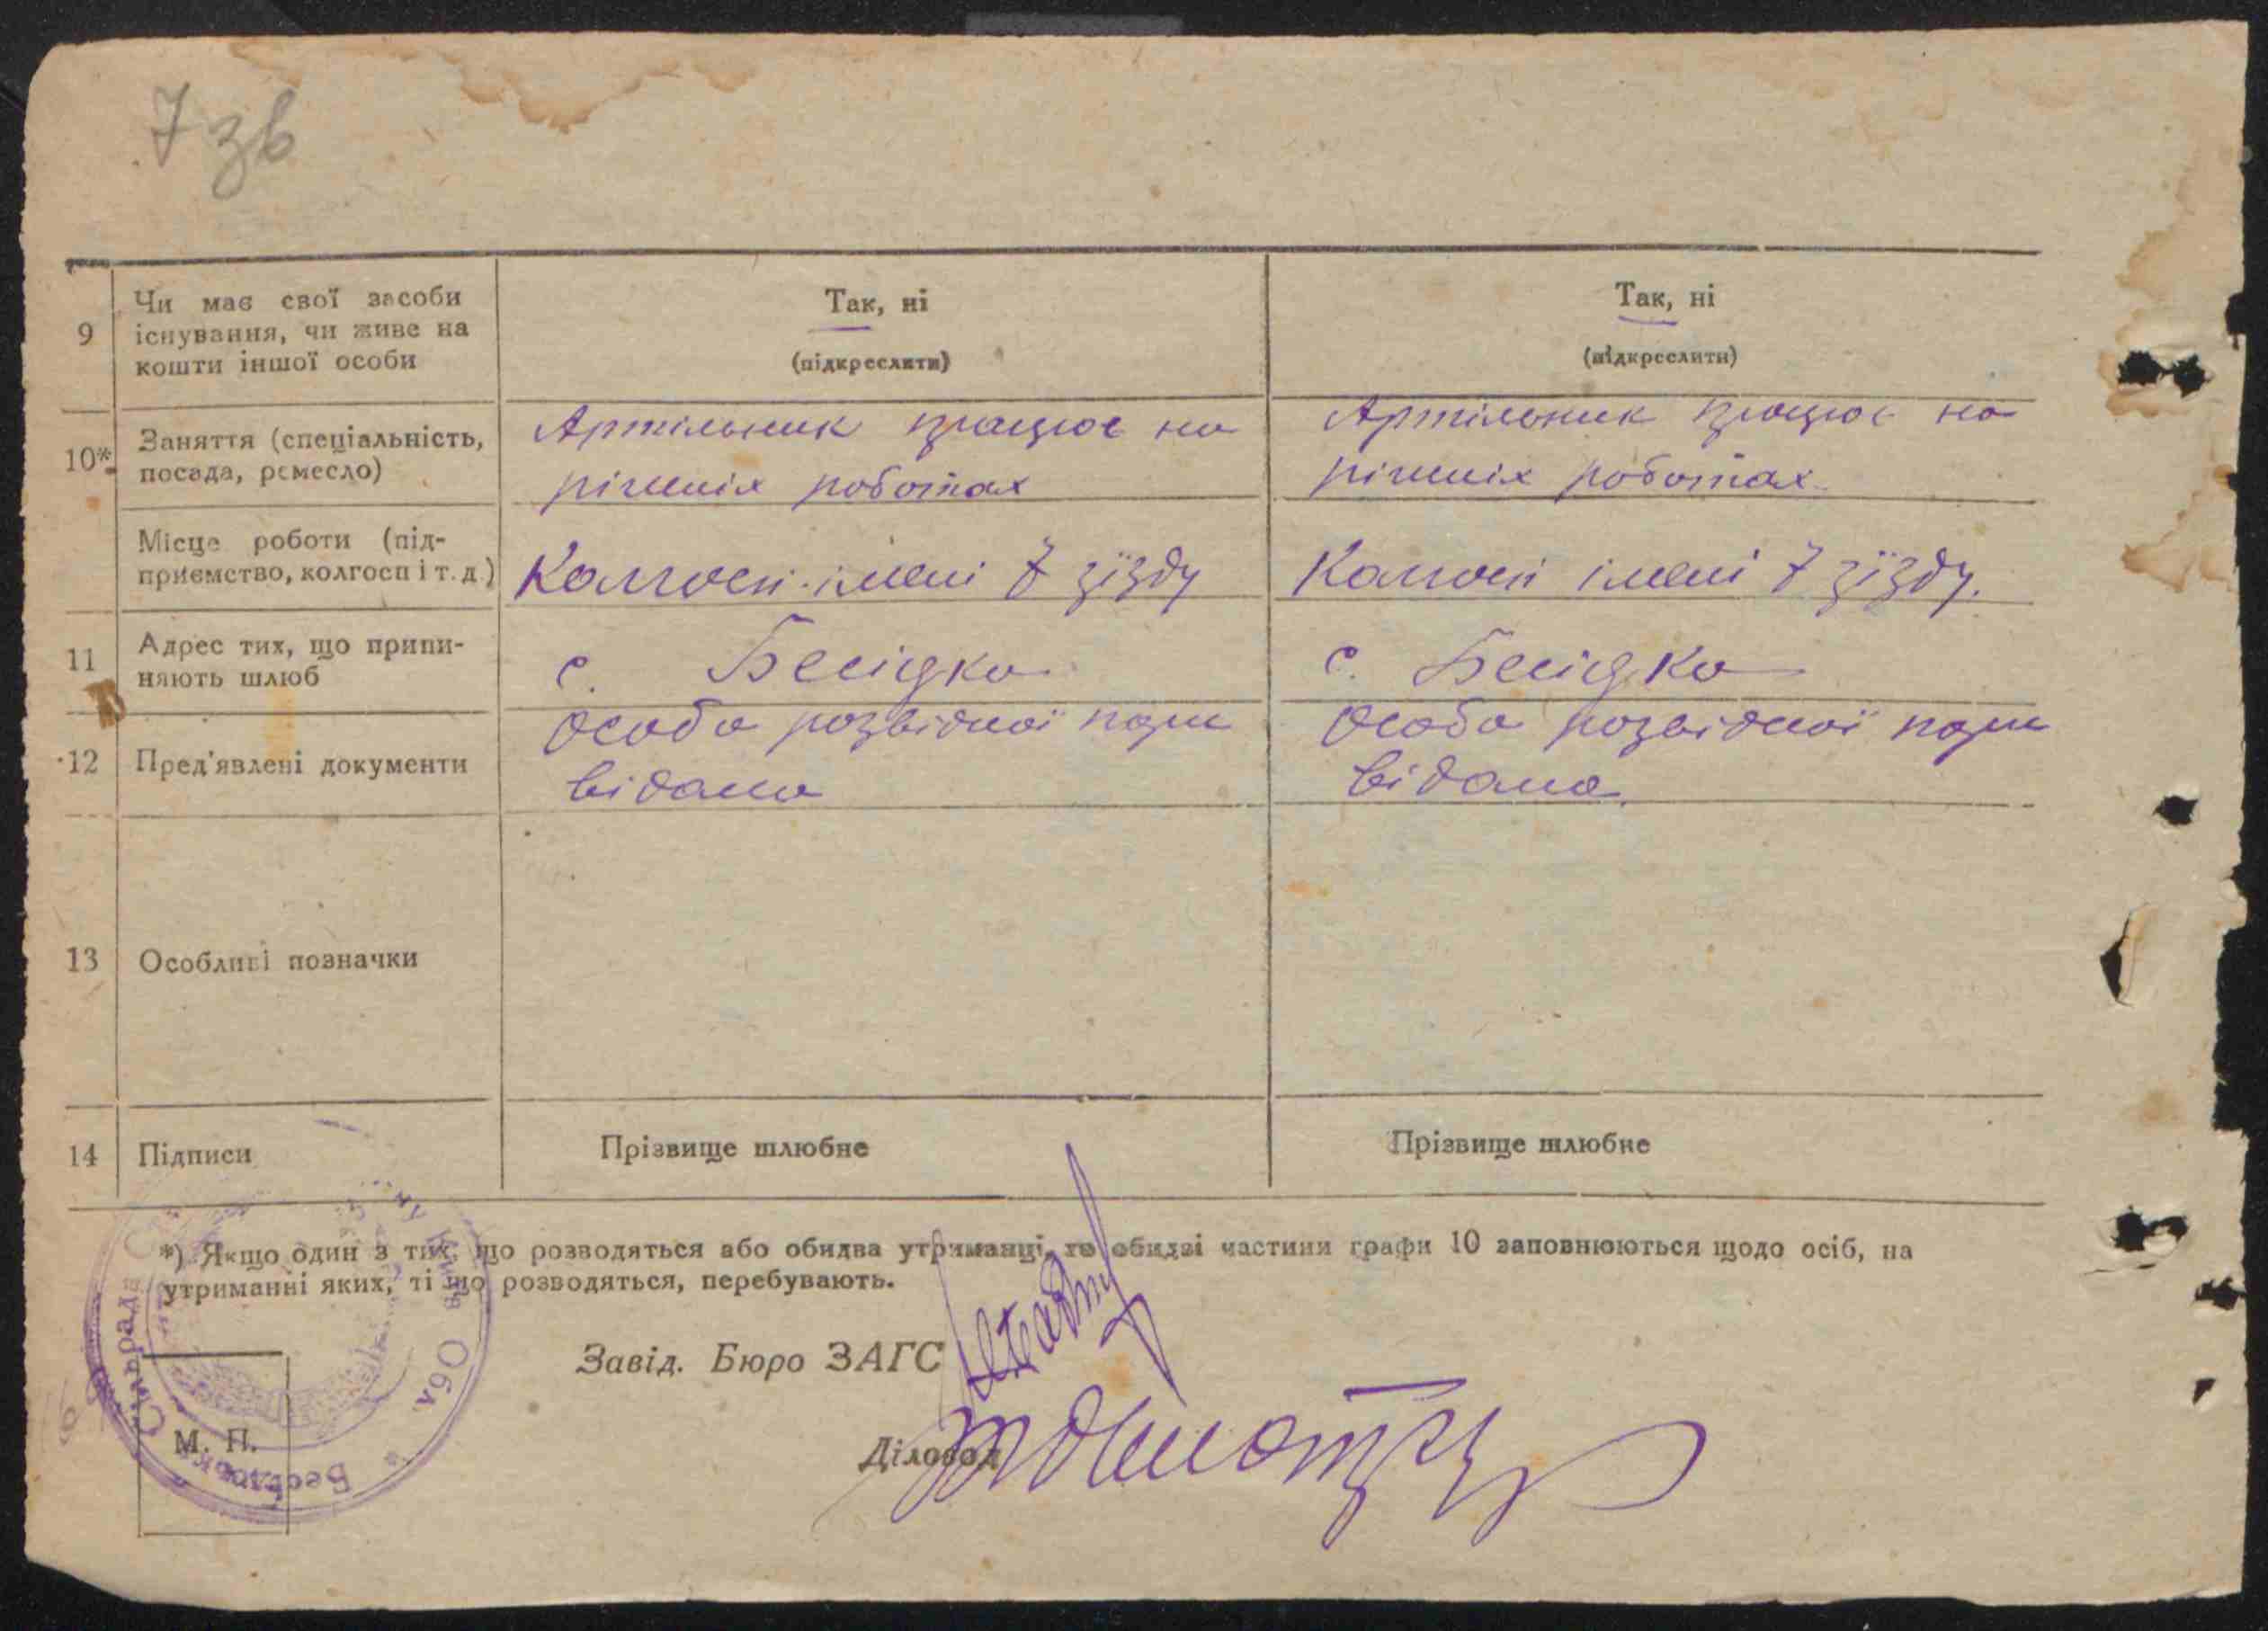 7 зв
9
Чи має свої засоби
існування, чи живе на
кошти іншої особи
Так, ні
(підкреслити)
Так, ні
(підкреслити)
10*
Заняття (спеціальність,
посада, ремесло)
Артільник працює на
ріжніх роботах
Артільник працює на
ріжніх роботах
Місце роботи (під-
приємство, колгосп і т. д.)
Колгосп імені 7 зїзду
Колгосп імені 7 зїзду.
11
Адрес тих, що припи-
няють шлюб
с. Бесідка
с. Бесідка
12
Пред'явлені документи
Особа розвідної пари
відома
Особа розвідної пари
відома
13
Особливі позначки
14
Підписи
Прізвище шлюбне
Прізвище шлюбне
*) Якщо один з тих, що розводяться або обидва утриманці, то обидві частини графи 10 заповнюються щодо осіб, на
утриманні яких, ті що розводяться, перебувають.
Завід. Бюро ЗАГС
Діловод
М. П.
Сільрада
Обл